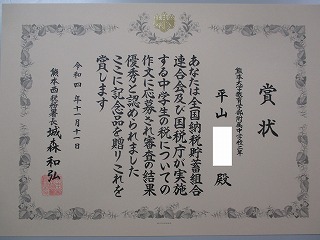 賞状
熊本大学教育学部附属中学校二年
平山
殿
あなたは全国納税貯蓄組合
連合会及び国税庁が実施
する中学生の税についての
作文に応募され審査の結果
優秀と認められました
ここに記念品を贈りこれを
賞します
令和四年十一月十一日
熊本西税務署長 城森和弘